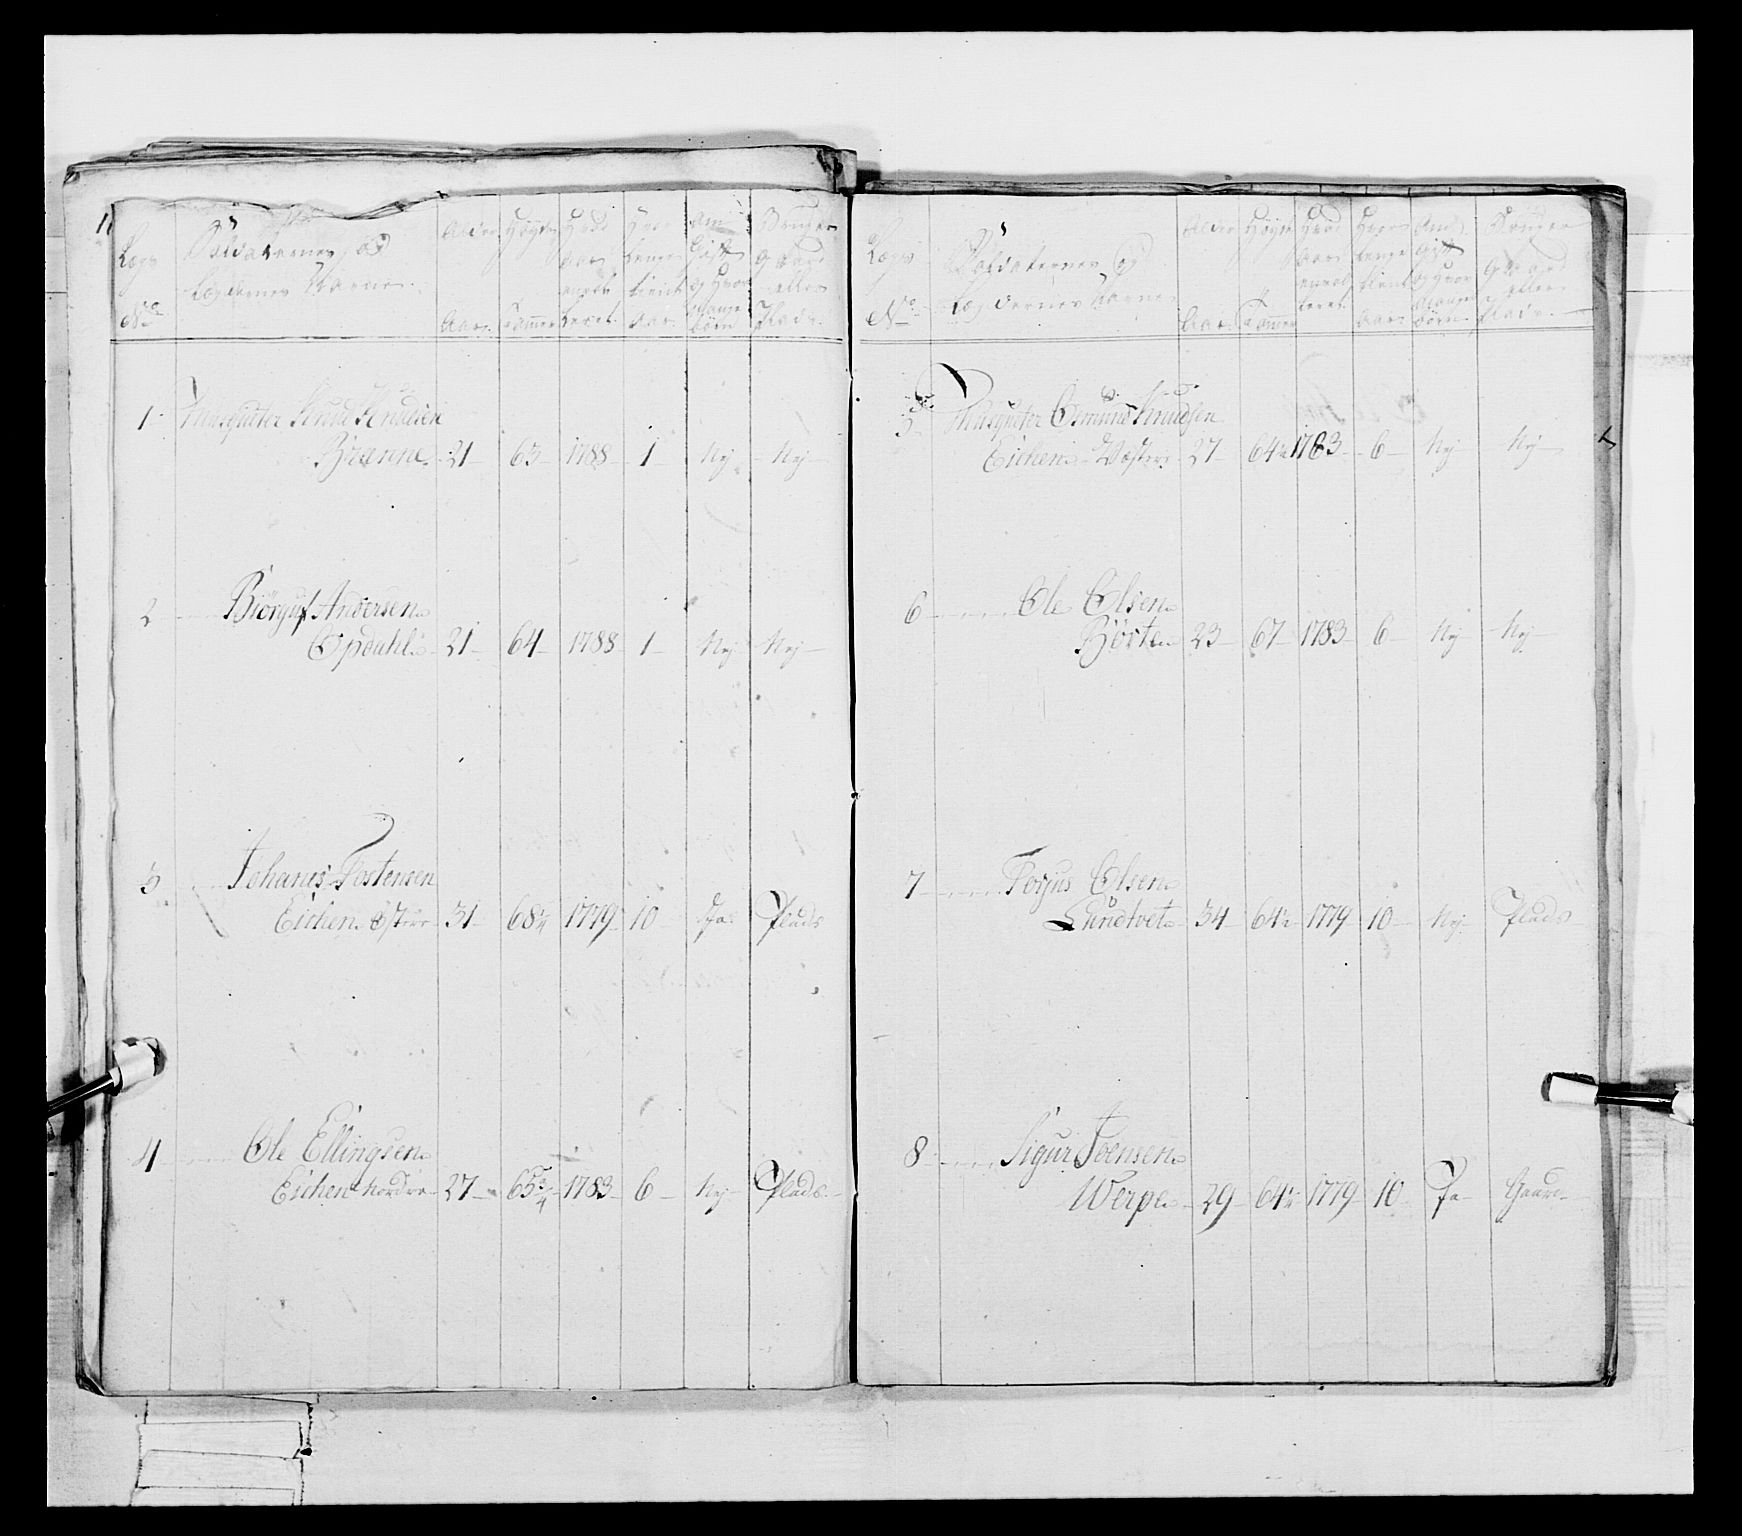 Lægs No
Soldaternes og Lægdernes Navne.
Alder Aar.
Høyde Tommer
Hvad Aar enrolleret.
Hvor lenge tient Aar.
Om Gift og Hvor Mange Børn
Bruger Gaard eller Plads.
1 Musqueter Knud Knudsen
Brænne 21 63 1788 1 Nej Nej
2 Biörguf Andersen
Opdahl 21 64 1788 1 Nej Nej
3 Johanis Tostensen
Eichen Østre 31 68 1/4 1779 10 Ja Plads
4 Ole Ellingsen
Eichen Nordre 27 65 3/4 1783 6 Nej Plads
Lægs No
Soldaternes og Lægdernes Navne
Alder Aar.
Høyde Tommer
Hvad Aar enrolleret.
Hvor lenge tient Aar
Om Gift og Hvor Mange Børn
Bruger Gaard eller Plads.
5 Musqueter Osmund Knudsen
Eichen Væstre 27 64 1/2 1783 6 Nej Nej
6 Ole Olsen
Börte 23 67 1783 6 Nej Nej
7 Torjus Olsen
Lundtvet 34 64 1/2 1779 10 Nej Plads
8 Sigur Joensen
Werpe 29 64 1/2 1779 10 Ja Gaard